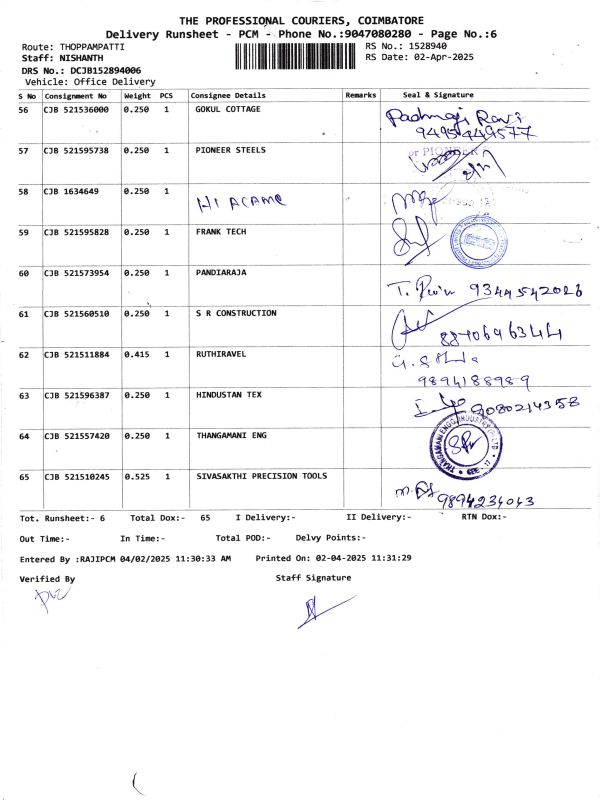 THE PROFESSIONAL COURIERS, COIMBATORE
Delivery Runsheet - PCM - Phone No.:9047080280 - Page No.:6
Route: THOPPAMPATTI RS No.: 1528940
Staff: NISHANTH RS Date: 02-Apr-2025
DRS No.: DCJB152894006
Vehicle: Office Delivery
S No Consignment No Weight PCS Consignee Details Remarks Seal & Signature
56 CJB 521536000 0.250 1 GOKUL COTTAGE
57 CJB 521595738 0.250 1 PIONEER STEELS
58 CJB 1634649 0.250 1
59 CJB 521595828 0.250 1 FRANK TECH
60 CJB 521573954 0.250 1 PANDIARAJA 9344542026
61 CJB 521560510 0.250 1 S R CONSTRUCTION
62 CJB 521511884 0.415 1 RUTHIRAVEL 9894188989
63 CJB 521596387 0.250 1 HINDUSTAN TEX 9080214358
64 CJB 521557420 0.250 1 THANGAMANI ENG
65 CJB 521510245 0.525 1 SIVASAKTHI PRECISION TOOLS 9894234043
Tot. Runsheet:- 6 Total Dox:- 65 I Delivery:- II Delivery:- RTN Dox:-
Out Time:- In Time:- Total POD:- Delvy Points:-
Entered By :RAJIPCM 04/02/2025 11:30:33 AM Printed On: 02-04-2025 11:31:29
Verified By Staff Signature